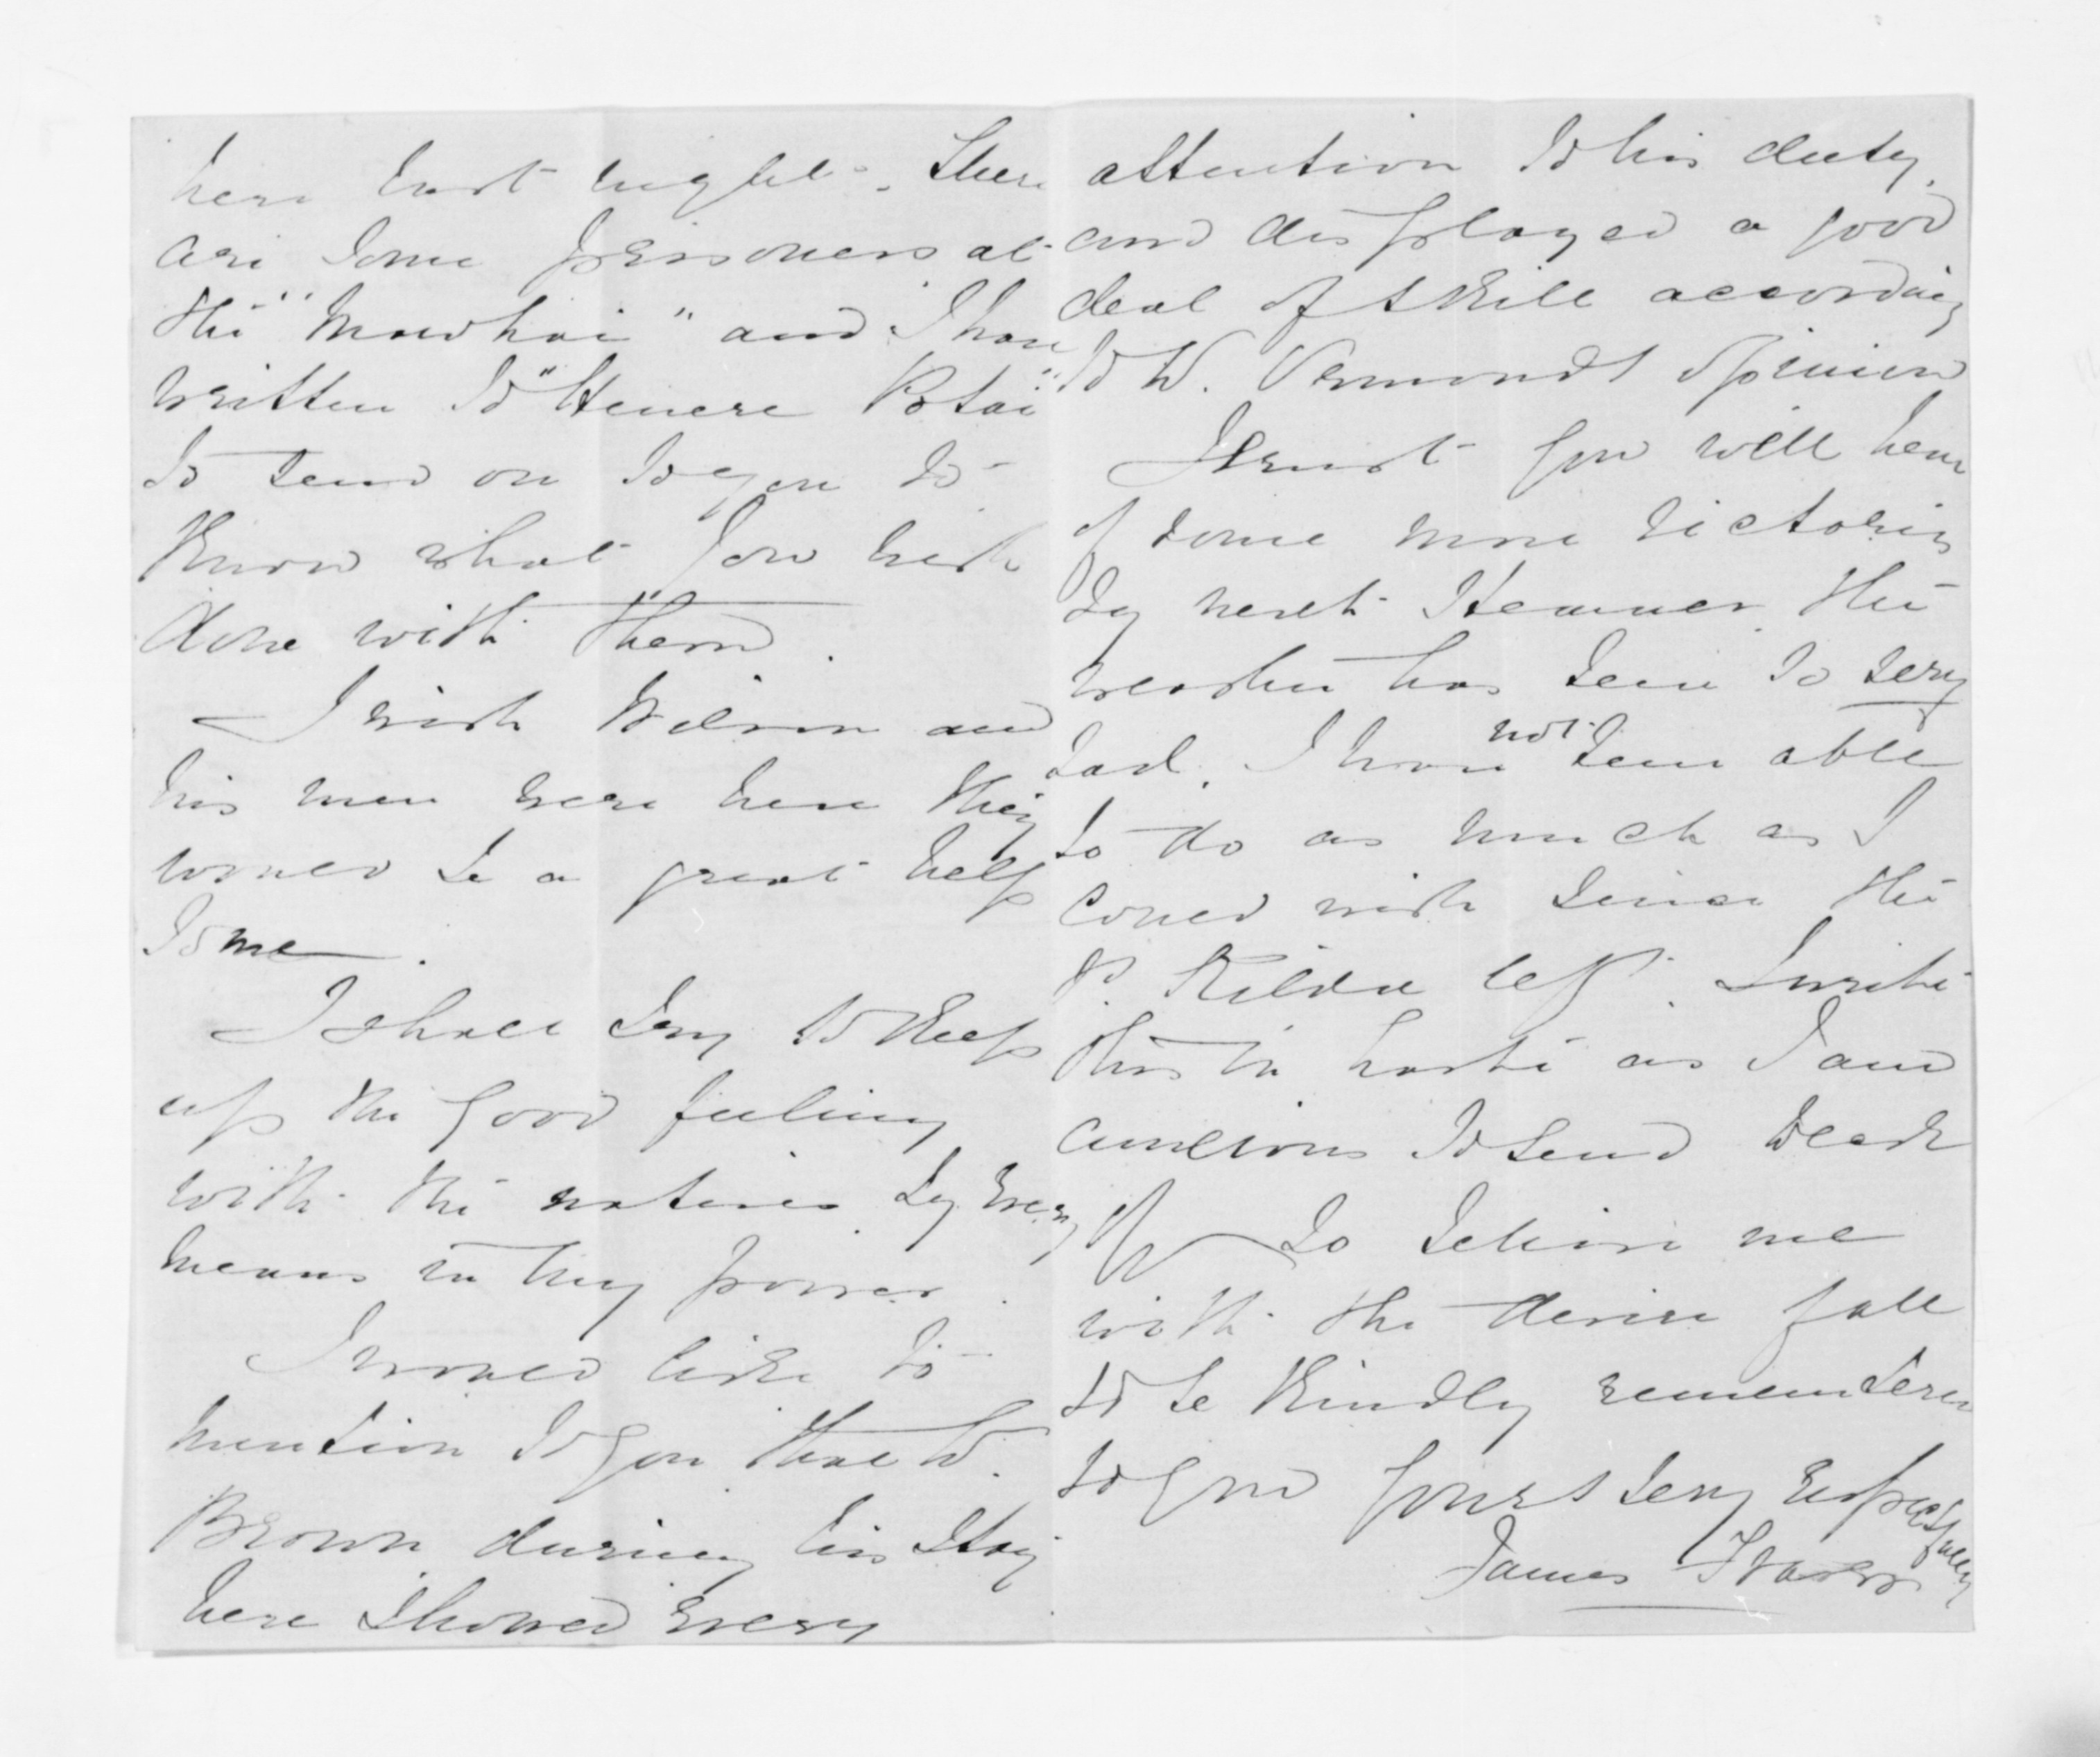 here last night. There
are some prisoners at
the "Mawhai" and I have
written to "Henere Potai"
to send on to you to
know what you wish
done with them.
I wish Wilson and
his men were here they
would be a great help
to me.
I shall try to keep
up the good feeling
with the natives by every
means in my power.
I would like to
mention to you that W.
Brown during his stay
here showed every
attention to his duty,
and displayed a good
deal of skill according
to W. Ormonds opinion
I trust you will hear
of some more victories
by next Steamer. The
weather has been so very
bad. I have not been able
to do as much as I
could wish since the
St. Kilda left. I write
this in haste as I am
anxious to send
off so believe me
with the desire of all
to be kindly remembered
to you yours very respectfully
James Fraser